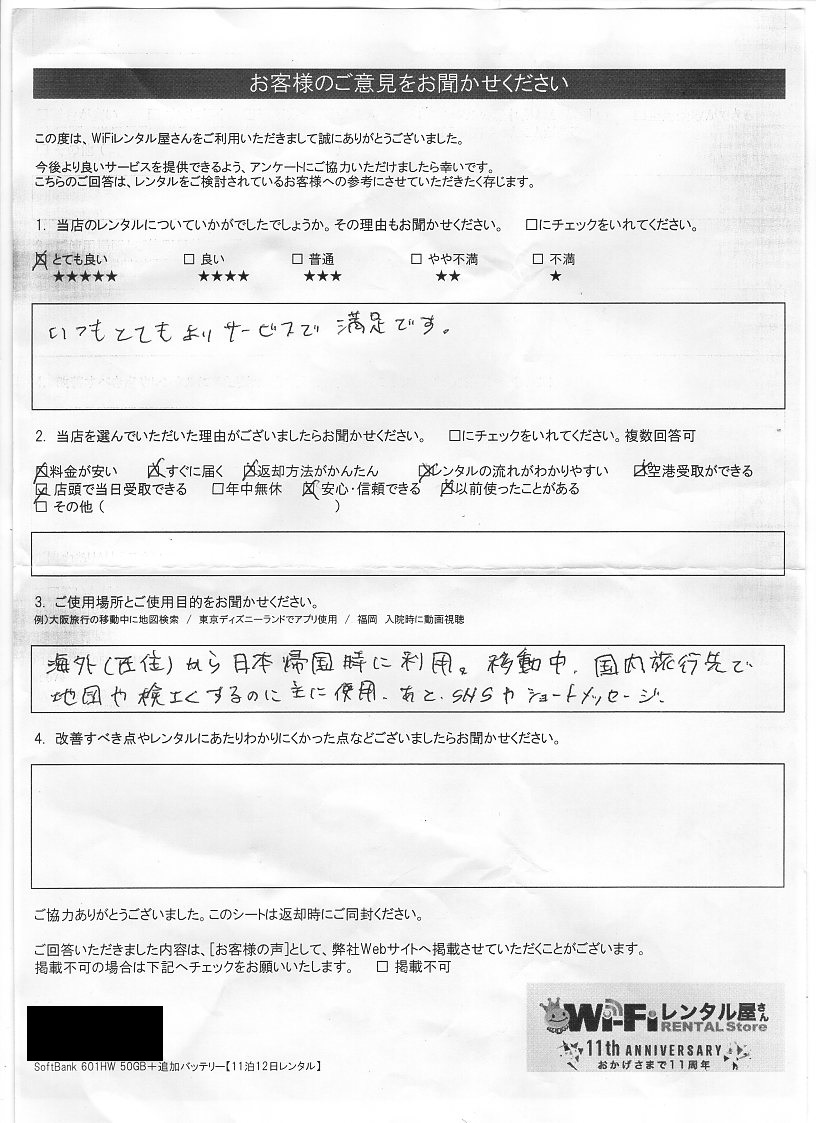 お客様のご意見をお聞かせください
この度は、WiFiレンタル屋さんをご利用いただきまして誠にありがとうございました。
今後より良いサービスを提供できるよう、アンケートにご協力いただけましたら幸いです。
こちらのご回答は、レンタルをご検討されているお客様への参考にさせていただきたく存じます。
1. 当店のレンタルについていかがでしたでしょうか。その理由もお聞かせください。 □にチェックをいれてください。
☒ とても良い □ 良い □ 普通 □ やや不満 □ 不満
★★★★★ ★★★★ ★★★ ★★ ★
いつもとてもよいサービスで満足です。
2. 当店を選んでいただいた理由がございましたらお聞かせください。 □にチェックをいれてください。複数回答可
☒料金が安い ☒すぐに届く ☒返却方法がかんたん ☒レンタルの流れがわかりやすい ☒空港受取ができる
☒ 店頭で当日受取できる □年中無休 ☒ 安心・信頼できる ☒以前使ったことがある
□ その他 ( )
3. ご使用場所とご使用目的をお聞かせください。
例)大阪旅行の移動中に地図検索 / 東京ディズニーランドでアプリ使用 / 福岡 入院時に動画視聴
海外(在住)から日本帰国時に利用。移動中、国内旅行先で
地図や検エくするのに主に使用、あと、SNSやショートメッセージ、
4. 改善すべき点やレンタルにあたりわかりにくかった点などございましたらお聞かせください。
ご協力ありがとうございました。このシートは返却時にご同封ください。
ご回答いただきました内容は、[お客様の声]として、弊社Webサイトへ掲載させていただくことがございます。
掲載不可の場合は下記へチェックをお願いいたします。 □ 掲載不可
SoftBank 601HW 50GB+追加バッテリー【11泊12日レンタル】
Wi-Fiレンタル屋さん
RENTAL Store
11th ANNIVERSARY
おかげさまで11周年